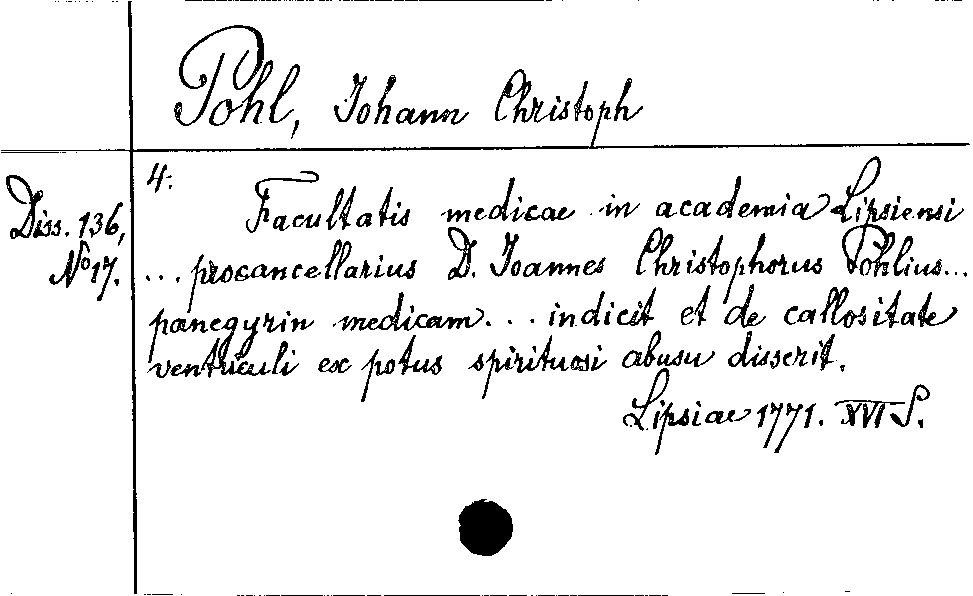 Pohl, Johann Christoph
Diss. 136,
No 17.
4.
Facultatis medicae in academia Lipsiensi
... procancellarius D. Joannes Christophorus Pohlius...
panegyrin medicam... indicit et de callositate
ventriculi ex potus spirituosi abusu disserit.
Lipsiae 1771. XVI S.